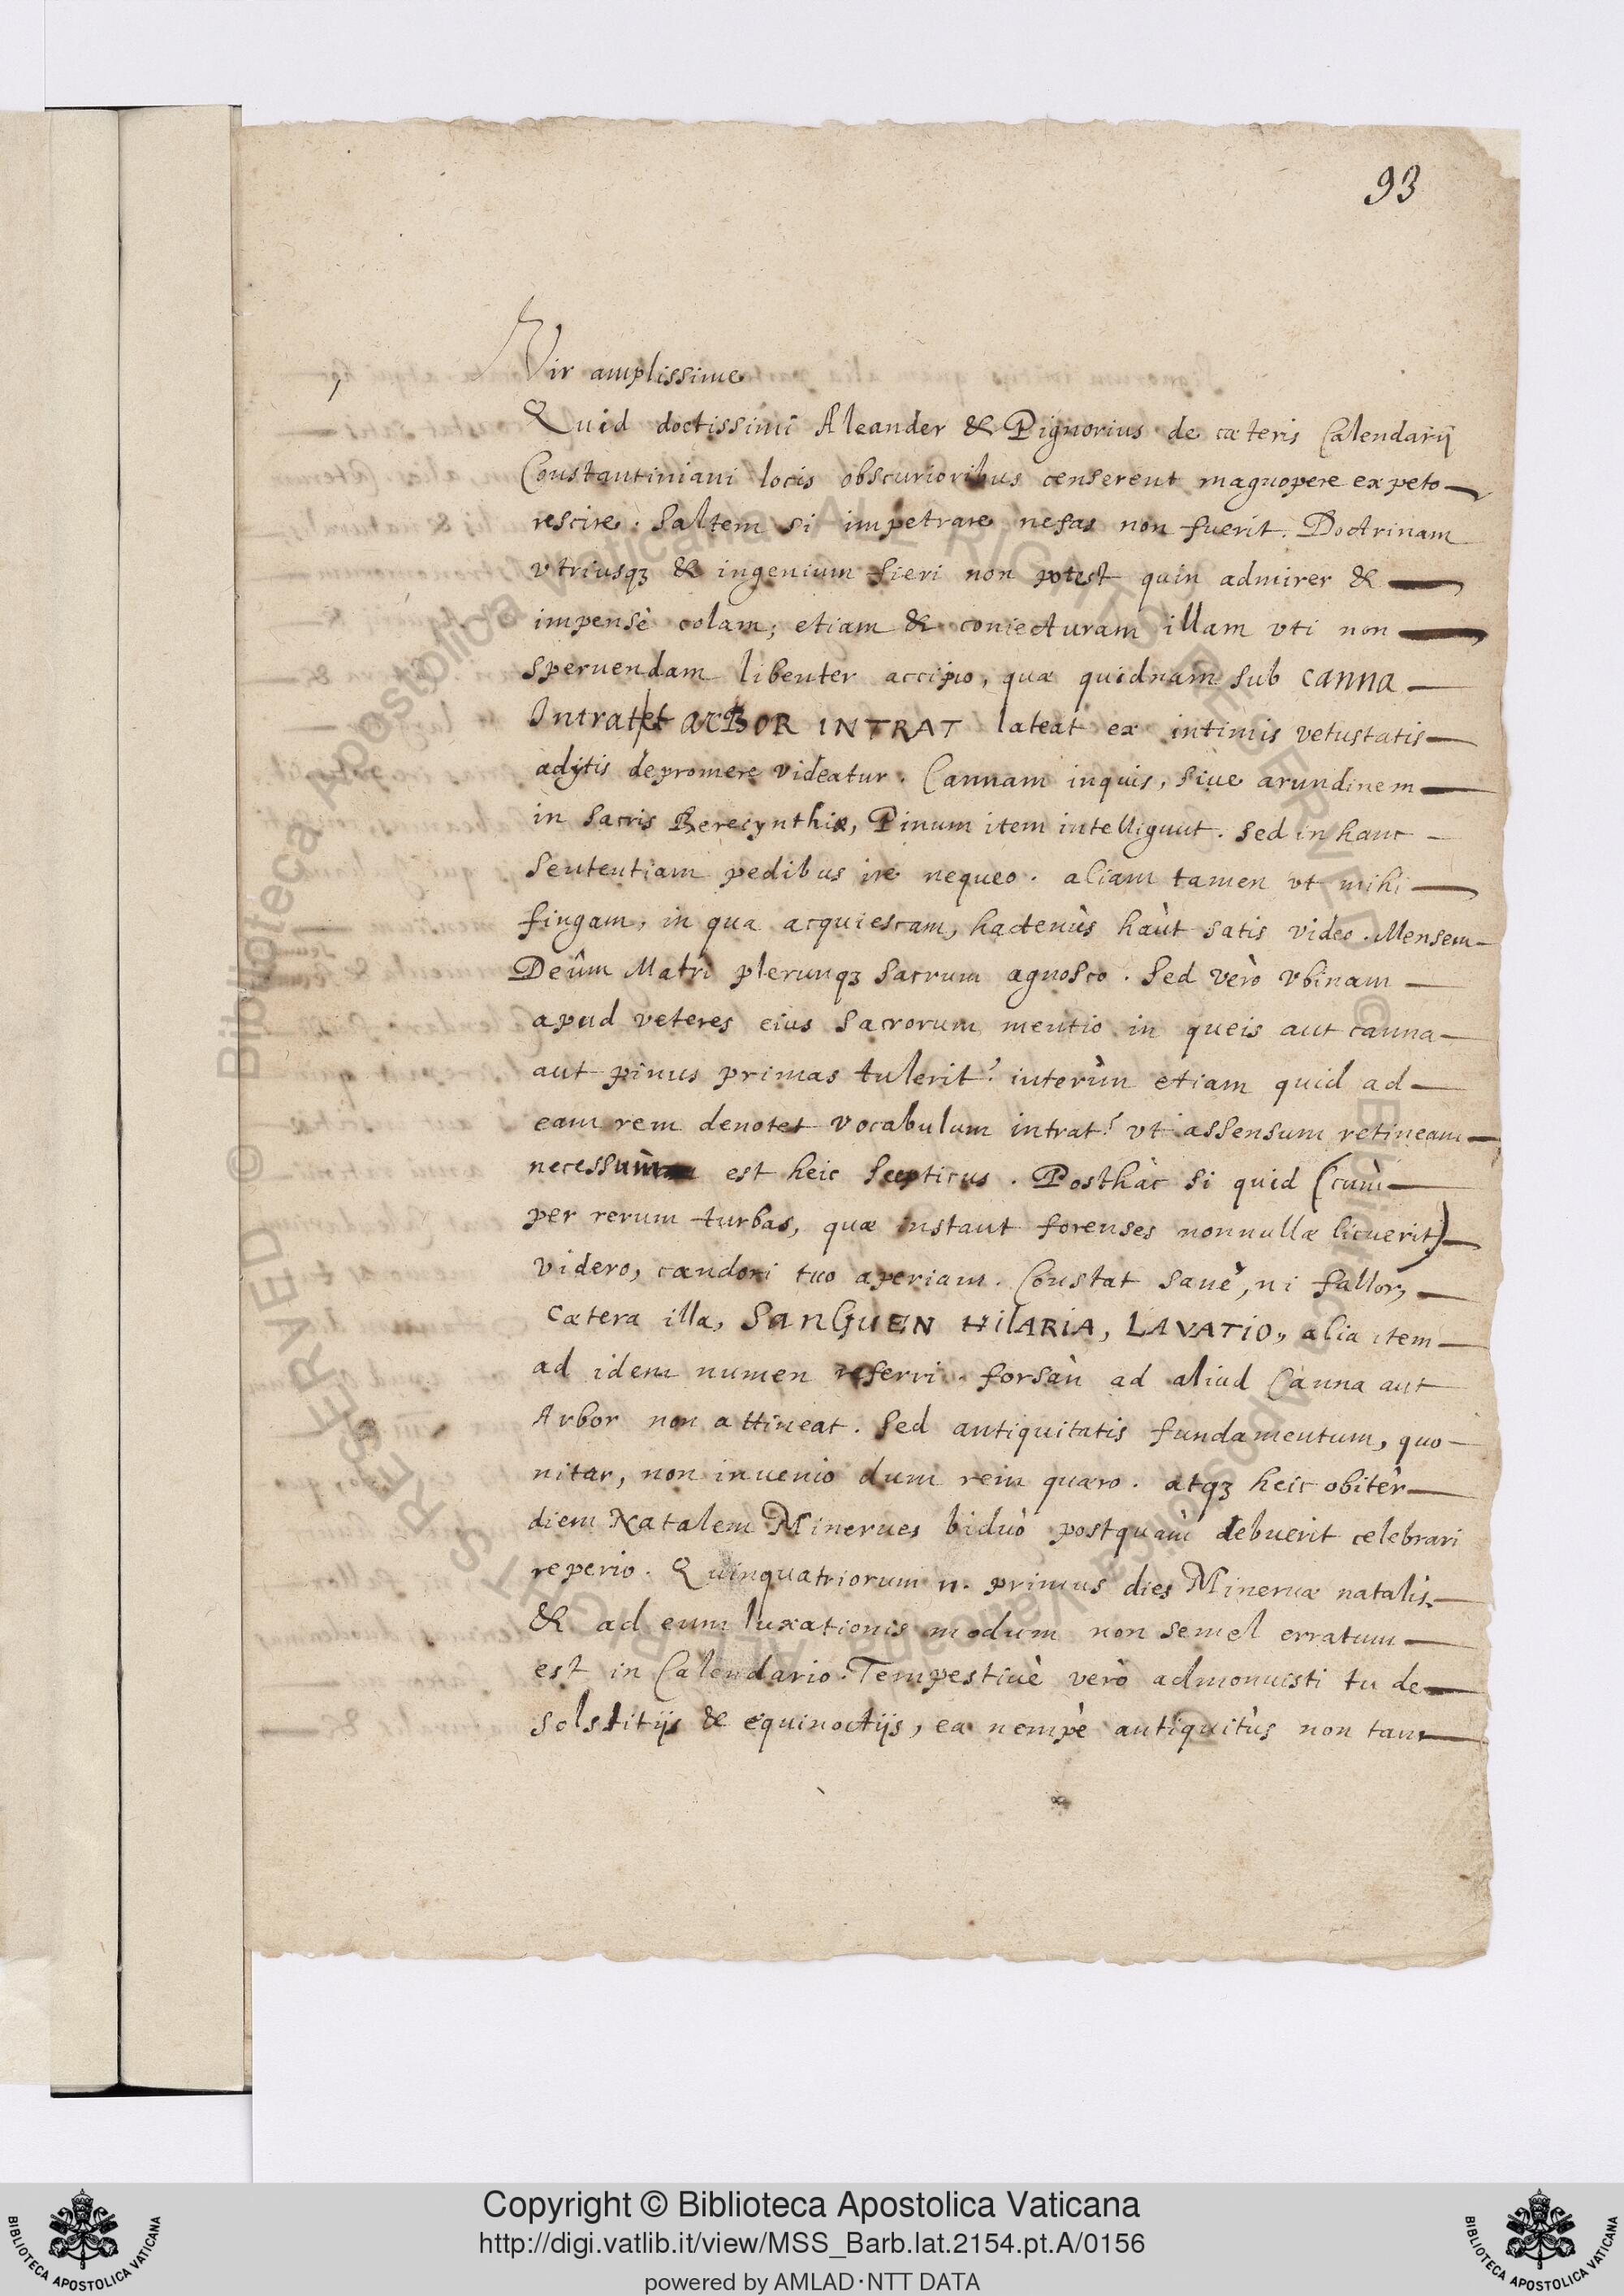 93
Vir amplissime
Quid doctissimi Aleander & Pignorius de cæteris Calendarij
Constantiniani locis obscurioribus censerent magnopere expeto
rescire. Saltem si impetrare nefas non fuerit. Doctrinam
vtriusqꝫ & ingenium fieri non potest quin admirer &
impensè colam; etiam & coniecturam illam vti non
spernendam libenter accipio, quæ quidnam sub CANNA
Intrat et ARBOR INTRAT lateat ex intimis vetustatis
adytis depromere videatur. Cannam inquis, siue arundinem
in sacris Berecynthiæ, Pinum item intelligunt. Sed in hanc
sententiam pedibus ire nequeo. aliam tamen vt mihi
fingam, in qua acquiescam, hactenùs haùt satis video. Mensem
Deûm Matri plerunqꝫ sacrum agnosco. Sed verò vbinam
apud veteres eius sacrorum mentio in queis aut canna
aut pinus primas tulerit? interìm etiam quid ad
eam rem denotet vocabulum intrat? vt assensum retineam
necessùm est heic scepticus. Posthàc si quid (cùm
per rerum turbas, quæ instant forenses nonnullæ licuerit)
videro, candori tuo aperiam. Constat sanè, ni fallor,
Cætera illa, SANGUEN HILARIA, LAVATIO, alia item
ad idem numen referri. forsàn ad aliud Canna aut
Arbor non attineat. Sed antiquitatis fundamentum, quo
nitar, non inuenio dum rem quæro. atqꝫ heic obitèr
diem Natalem Minerues biduò postquàm debuerit celebrari
reperio. Quinquatriorum n. primus dies Mineruæ natalis.
& ad eum luxationis modum non semel erratum
est in Calendario. Tempestiuè verò admonuisti tu de
solstitijs & equinoctijs, ea nempè antiquitùs non tam
© Biblioteca Apostolica Vaticana ALL RIGHTS RESERVED
© Biblioteca Apostolica Vaticana ALL RIGHTS RESERVED
Copyright © Biblioteca Apostolica Vaticana
http://digi.vatlib.it/view/MSS_Barb.lat.2154.pt.A/0156
powered by AMLAD·NTT DATA
BIBLIOTECA APOSTOLICA VATICANA
BIBLIOTECA APOSTOLICA VATICANA